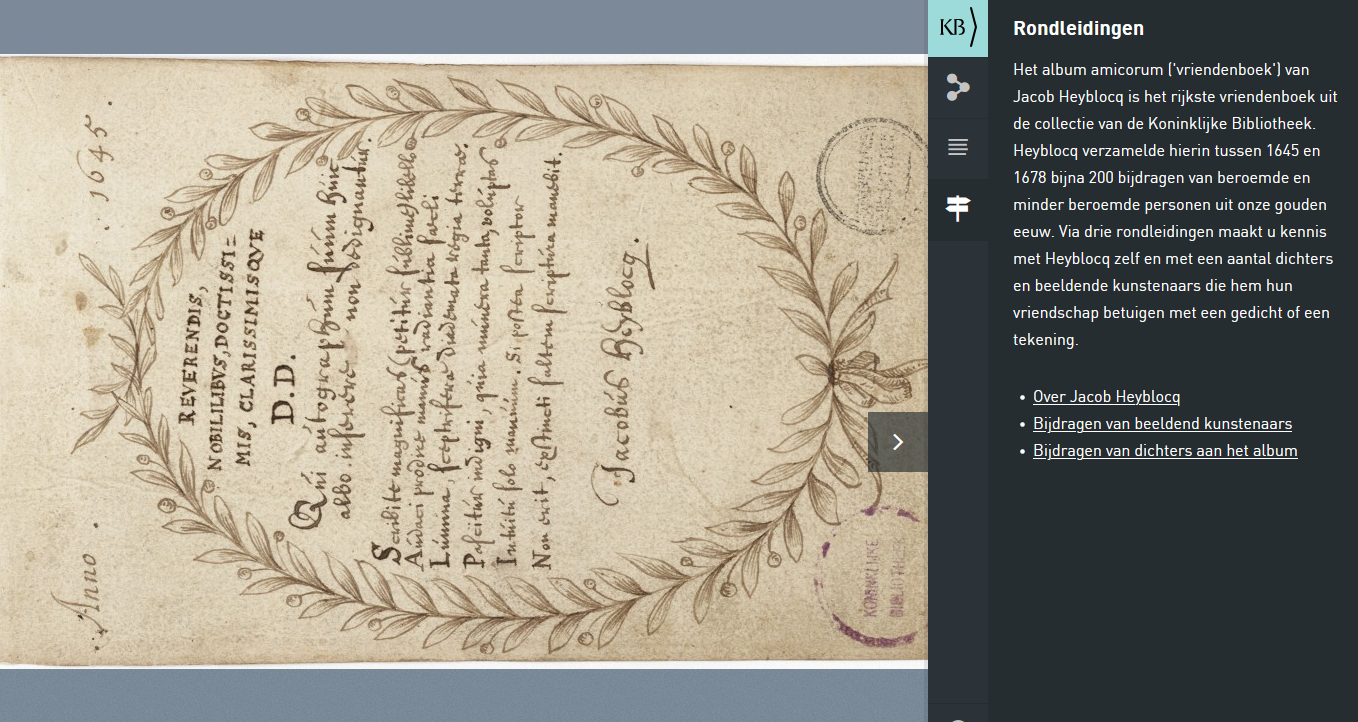 Anno . 1645.
REVERENDIS,
NOBILILIBVS, DOCTISSI=
MIS, CLARISSIMISQVE
D.D.
Qui autographum suum huic
albo inserere non dedignantur.
Scribite magnificas (petitur sublime) libello
Audaci manus radiantia facti
Lumina, sceptrifera diademata regia terrae.
Pascitur indigni, quia munera tanta, voluptas
Intuitu solo manuum. Si scriptor
Non erit, extincti saltem scriptura manebit.
Jacobus Heyblocq.
KONINKLIJKE
BIBLIOTHEEK
KB
Rondleidingen
Het album amicorum ('vriendenboek') van
Jacob Heyblocq is het rijkste vriendenboek uit
de collectie van de Koninklijke Bibliotheek.
Heyblocq verzamelde hierin tussen 1645 en
1678 bijna 200 bijdragen van beroemde en
minder beroemde personen uit onze gouden
eeuw. Via drie rondleidingen maakt u kennis
met Heyblocq zelf en met een aantal dichters
en beeldende kunstenaars die hem hun
vriendschap betuigen met een gedicht of een
tekening.
Over Jacob Heyblocq
Bijdragen van beeldend kunstenaars
Bijdragen van dichters aan het album